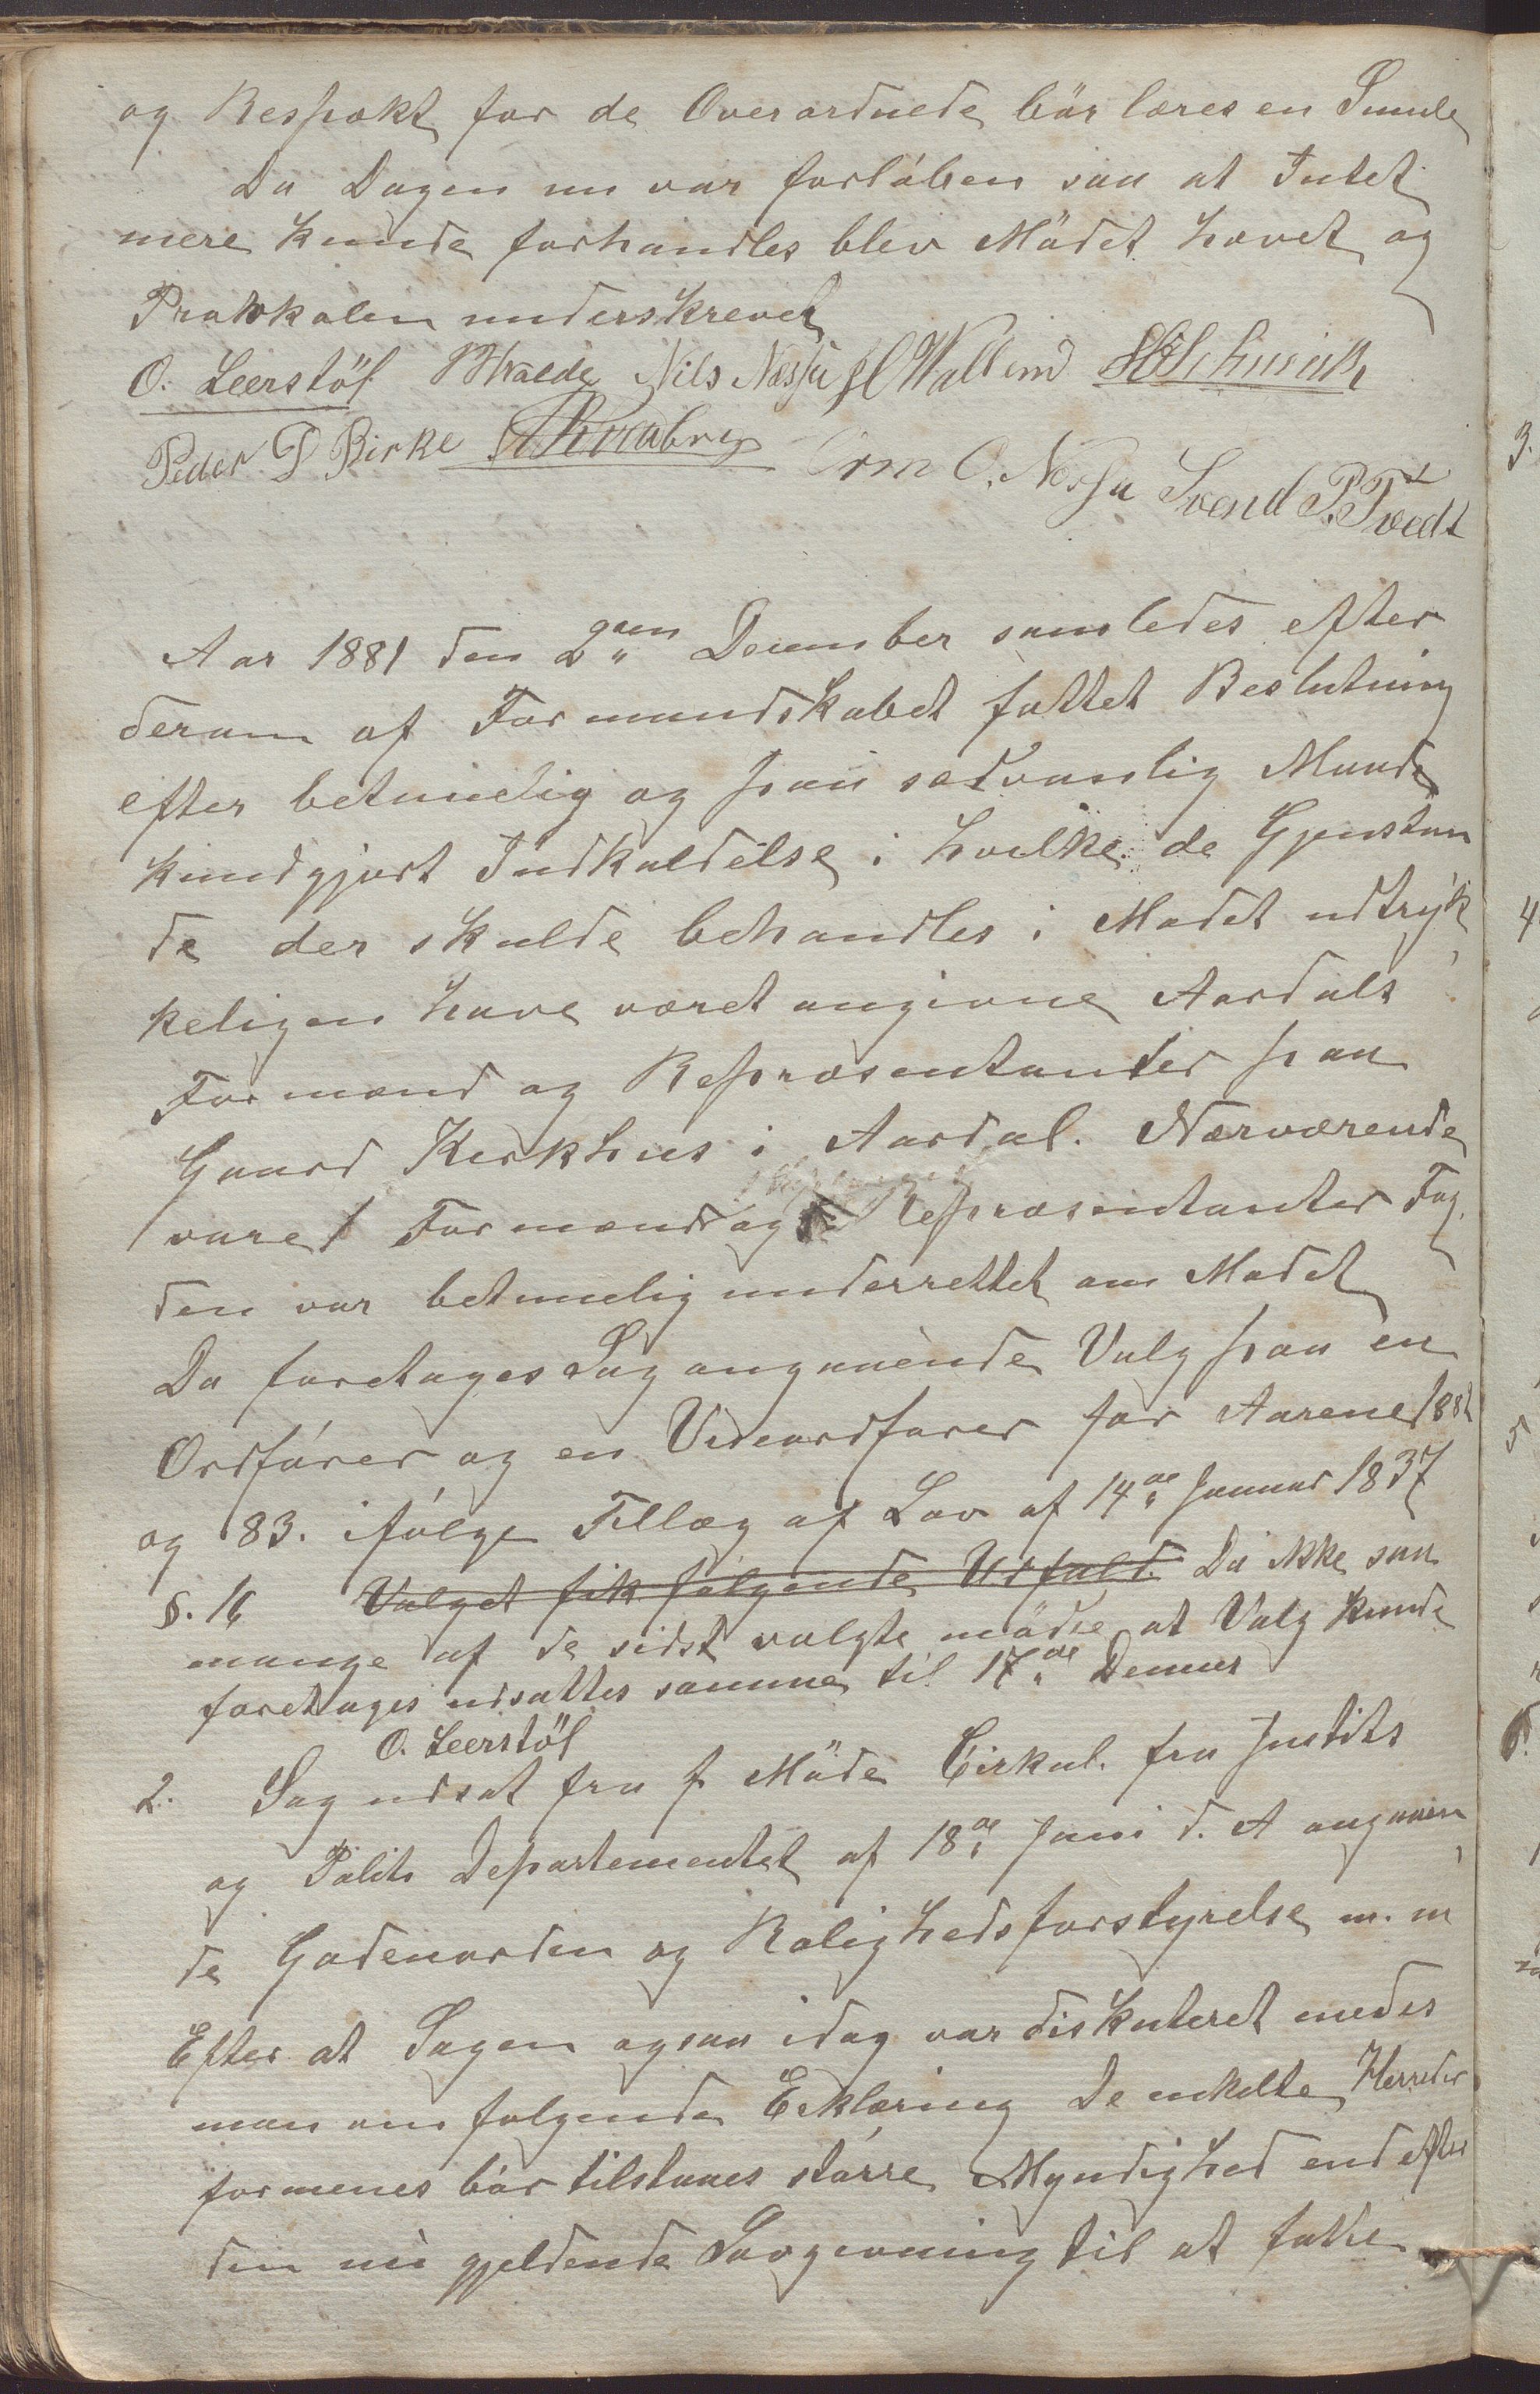 og Respekt for de Overordnede bör læres en Smule
Da Dagen nu var forløben saa at Intet
mere kunde forhandles blev Mödet hævet og
Protokolen underskrevet
O. Leerstöl Nils Næssa
Peder P Birke Orm O. Næssa Svend P. Tvedt
Aar 1881 den 2den December samledes efter
derom af Formandskabet fattet Beslutning
efter betimelig og paa sædvanlig Maade
kundgjort Indkaldelse i hvilke de Gjenstan
de der skulde behandles i Mødet udtryk
keligen have været angivne Aardals
Formænd og Repræsentanter paa
Gaard Kirkhus i Aardal. Nærværende
vare 1 Formænd og Repræsentanter Fog
den var betimelig underrettet om Mødet
Da foretages Sag angaaende Valg paa en
Ordfører og en Viceordfører for Aarene 1882
og 83. ifølge Tillæg af Lov af 14de Januar 1837
§. 16 Valget fik følgende Udfald. Da ikke saa
mange af de sidst valgte mödte at Valg kunde
foretages udsattes samme til 17de Dennes
O. Leerstöl
2. Sag udsat fra f. Möde Cirkul. fra Justits
og Politi Departementet af 18de Juni d. A angaaen
de Gadeuorden og Rolighedsforstyrelse m. m
Efter at Sagen ogsaa idag var diskuteret enedes
man om følgende Erklæring De enkelte Herreder
formenes bör tilstaaes større Myndighed end efter
den nu gjeldende Lovgivning til at fatte